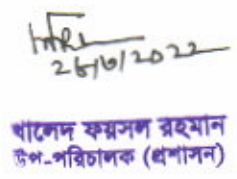 ২৮/৩/2022
খালেদ ফয়সল রহমান
উপ-পরিচালক (প্রশাসন)